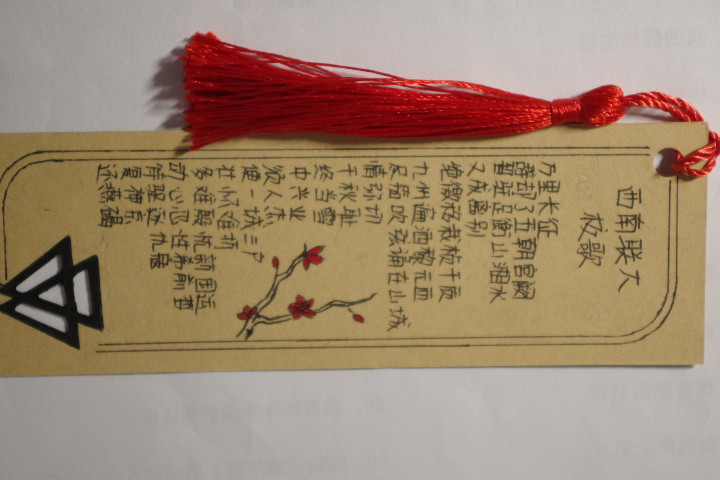 西南联大
校歌
万里长征
辞却了五朝宫阙
暂驻足衡山湘水
又成离别
绝徼移栽桢干质
九州遍洒黎元血
尽笳吹弦诵在山城
情弥切
千秋耻
终当雪
中兴业
须人杰
便一城三户
壮怀难折
多难殷忧新国运
动心忍性希前哲
待驱逐仇寇
复神京
还燕碣